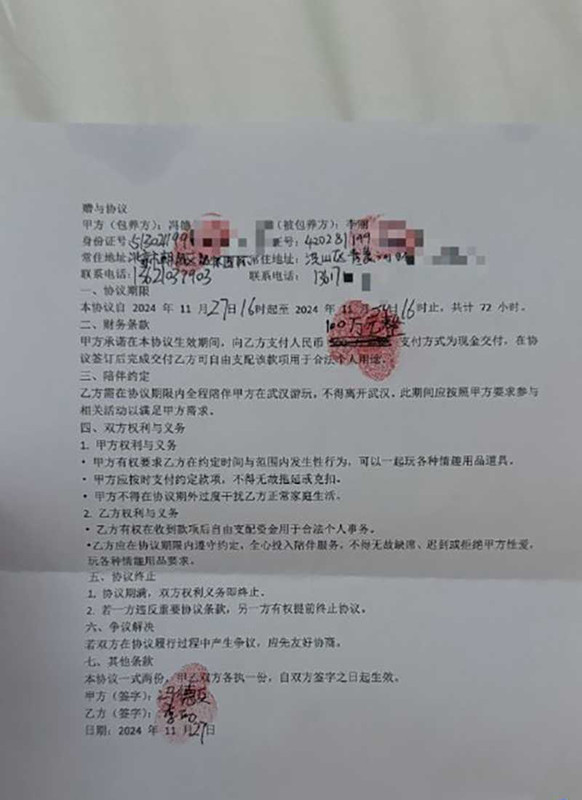 赠与协议
甲方（包养方）：冯德 （被包养方）：李
身份证号 证号：420281199
常住地址： 常住地址：洪山区
联系电话： 联系电话：1361
一、协议期限
本协议自 2024 年 11 月27日16时起至 2024 年 11月 日16时止，共计 72 小时。
二、财务条款 100万元整
甲方承诺在本协议生效期间，向乙方支付人民币 支付方式为现金交付，在协
议签订后完成交付乙方可自由支配该款项用于合法个人用途。
三、陪伴约定
乙方需在协议期限内全程陪伴甲方在武汉游玩，不得离开武汉。此期间应按照甲方要求参与
相关活动以满足甲方需求。
四、双方权利与义务
1. 甲方权利与义务
• 甲方有权要求乙方在约定时间与范围内发生性行为，可以一起玩各种情趣用品道具。
• 甲方应按时支付约定款项，不得无故拖延或克扣。
• 甲方不得在协议期外过度干扰乙方正常家庭生活。
2. 乙方权利与义务
• 乙方有权在收到款项后自由支配资金用于合法个人事务。
•乙方应在协议期限内遵守约定，全心投入陪伴服务，不得无故缺席、迟到或拒绝甲方性爱，
玩各种情趣用品要求。
五、协议终止
1. 协议期满，双方权利义务即终止。
2. 若一方违反重要协议条款，另一方有权提前终止协议。
六、争议解决
若双方在协议履行过程中产生争议，应先友好协商。
七、其他条款
本协议一式两份，甲乙双方各执一份，自双方签字之日起生效。
甲方（签字）：
乙方（签字）：
日期：2024 年 11 月27日